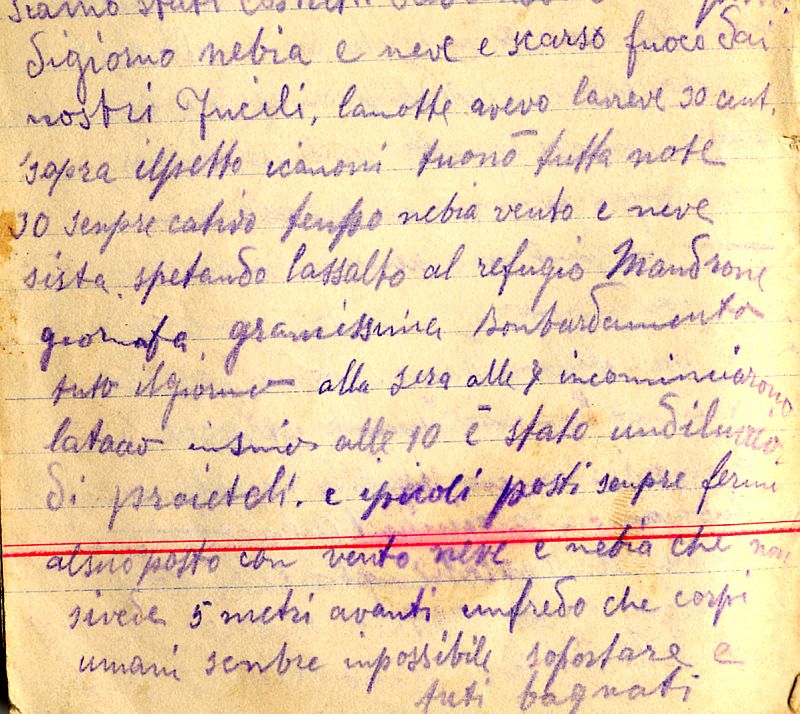 siamo stati
digiorno nebia e neve e scarso fuoco dai
nostri Fucili, lanotte avevo laneve 30 cent.
sopra ilpetto icanoni tuonò tutta note
30 senpre cativo tenpo nebia vento e neve
sista spetando lassalto al refugio Mandrone
giornata gravissima Bonbardamento
tuto ilgiorno alla sera alle 7 incominciarono
lataco insino alle 10 è stato undiluvio
di proietoli. e ipicoli posti senpre fermi
alsuo posto con vento neve e nebia che non
sivede 5 metri avanti unfredo che corpi
umani senbre inpossibile soportare e
tuti bagnati